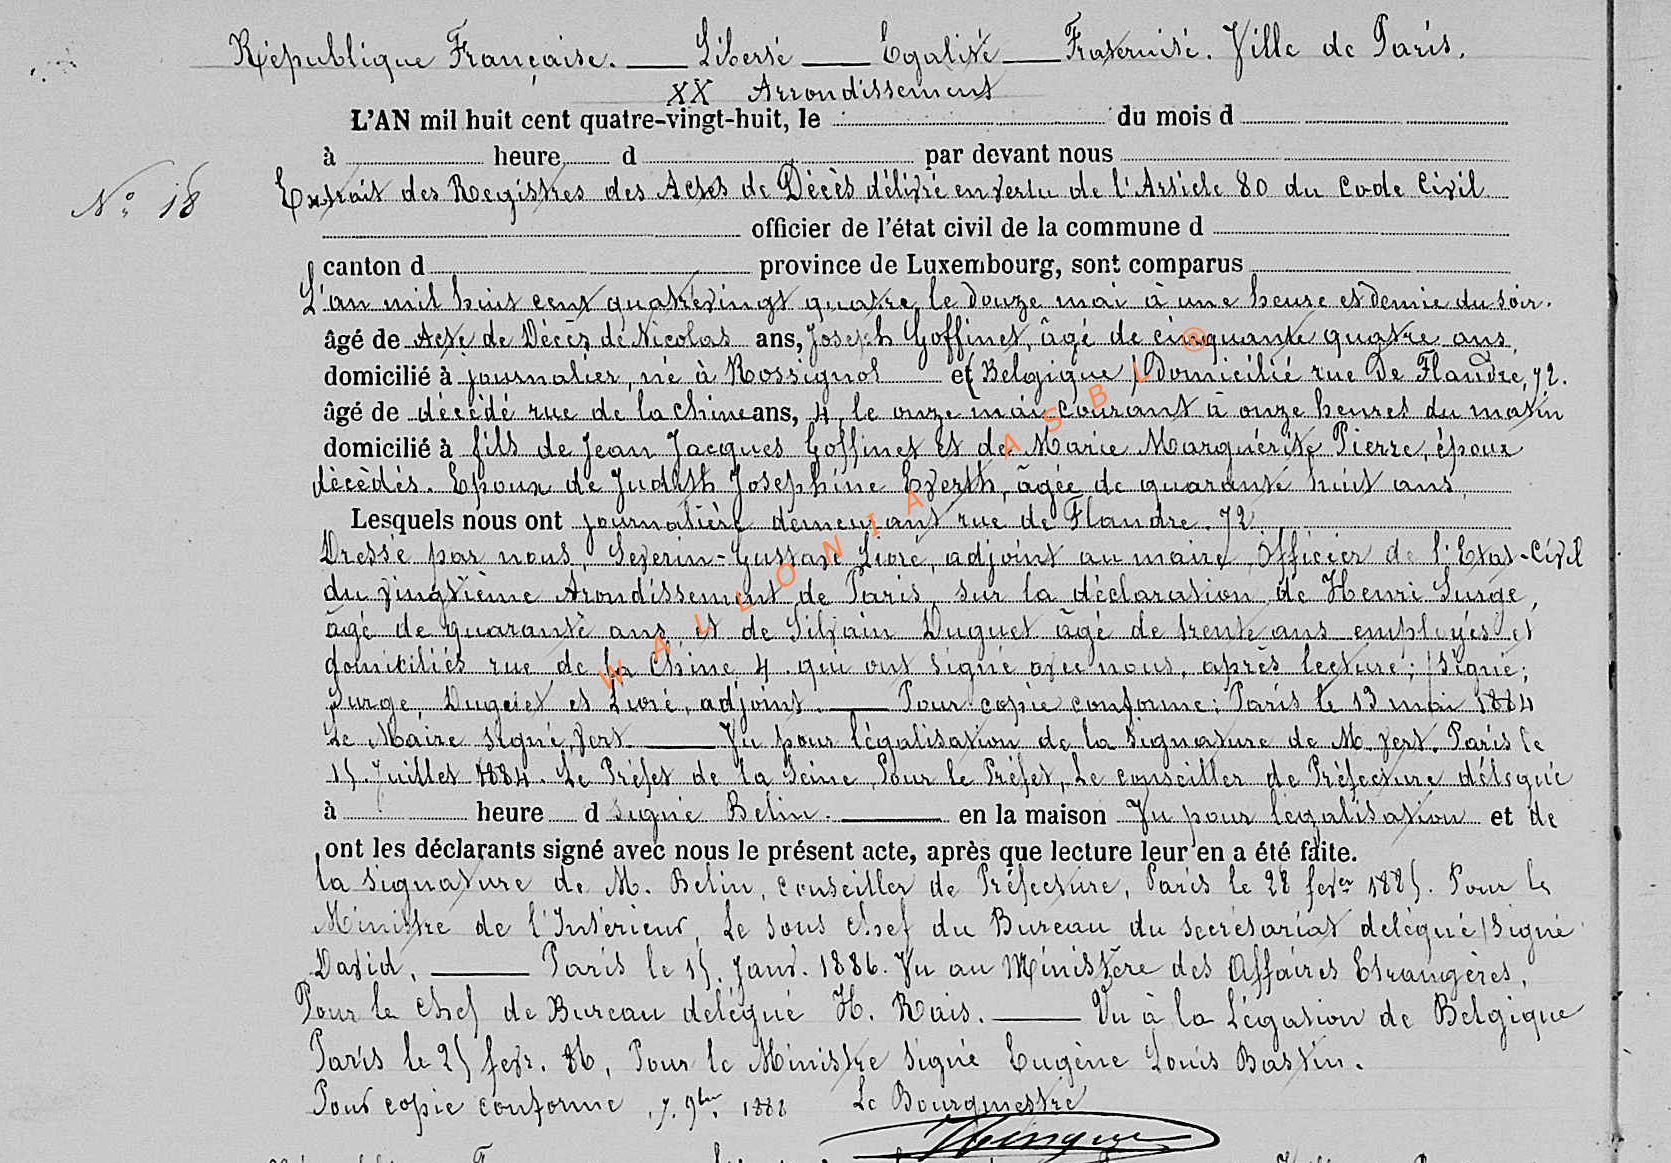 République Française. — Liberté — Egalité — Fraternité. Ville de Paris.
XX Arrondissement
L'AN mil huit cent quatre-vingt-huit, le du mois d
à heure d par devant nous
N° 18
Extrait des Registres des Actes de Décès délivré en vertu de l'Article 80 du Code Civil
officier de l'état civil de la commune d
canton d province de Luxembourg, sont comparus
L'an mil huit cent quatrevingt quatre, le douze mai à une heure et demie du soir.
âgé de Acte de Décès de Nicolas ans, Joseph Goffinet, âgé de cinquante quatre ans,
domicilié à journalier, né à Rossignol et (Belgique) Domicilié rue De Flandre, 72.
âgé de décédé rue de la Chine ans, 4, le onze mai courant à onze heures du matin
domicilié à fils de Jean Jacques Goffinet et de Marie Marguérite Pierre, époux
décèdés. Epoux de Judith Josephine Everth, âgée de quarante huit ans,
Lesquels nous ont journalière demeurant rue de Flandre. 72
Dressé par nous, Severin-Gustave Livré, adjoint au maire, Officier de l'Etat-Civil
du vingtième Arondissement de Paris, sur la déclaration de Henri Surge,
âgé de quarante ans, et de Silvain Duguet âgé de trente ans employés et
domiciliés rue de la Chine 4. qui ont signé avec nous, après lecture; / Signé;
Surge, Duguet et Livré, adjoint. — Pour copie conforme; Paris le 13 mai 1884
Le Maire signé, Vert. — Vu pour légalisation de la signature de M. Vert. Paris le
15. Juillet 1884. Le Préfet de la Seine, Pour le Préfet, Le conseiller de Préfecture délégué
à heure d signé Belin. — en la maison Vu pour legalisation et de
ont les déclarants signé avec nous le présent acte, après que lecture leur en a été faite.
la signature de M. Belin, conseiller de Préfecture, Paris le 28 fever 1885. Pour le
Ministre de l'Intérieur, Le sous chef du Bureau du secrétariat delégué / Signé
David. — Paris le 15. Janv. 1886. Vu au Ministère des Affaires Etrangères,
Pour le Chef de Bureau delégué H. Rais. — Vu à la Légation de Belgique
Paris le 25 fevr. 86, Pour le Ministre Signé Eugène Louis Bastin.
Pour copie conforme, 7. 9bre. 1888 Le Bourgmestre
WALLONIA ASBL ®